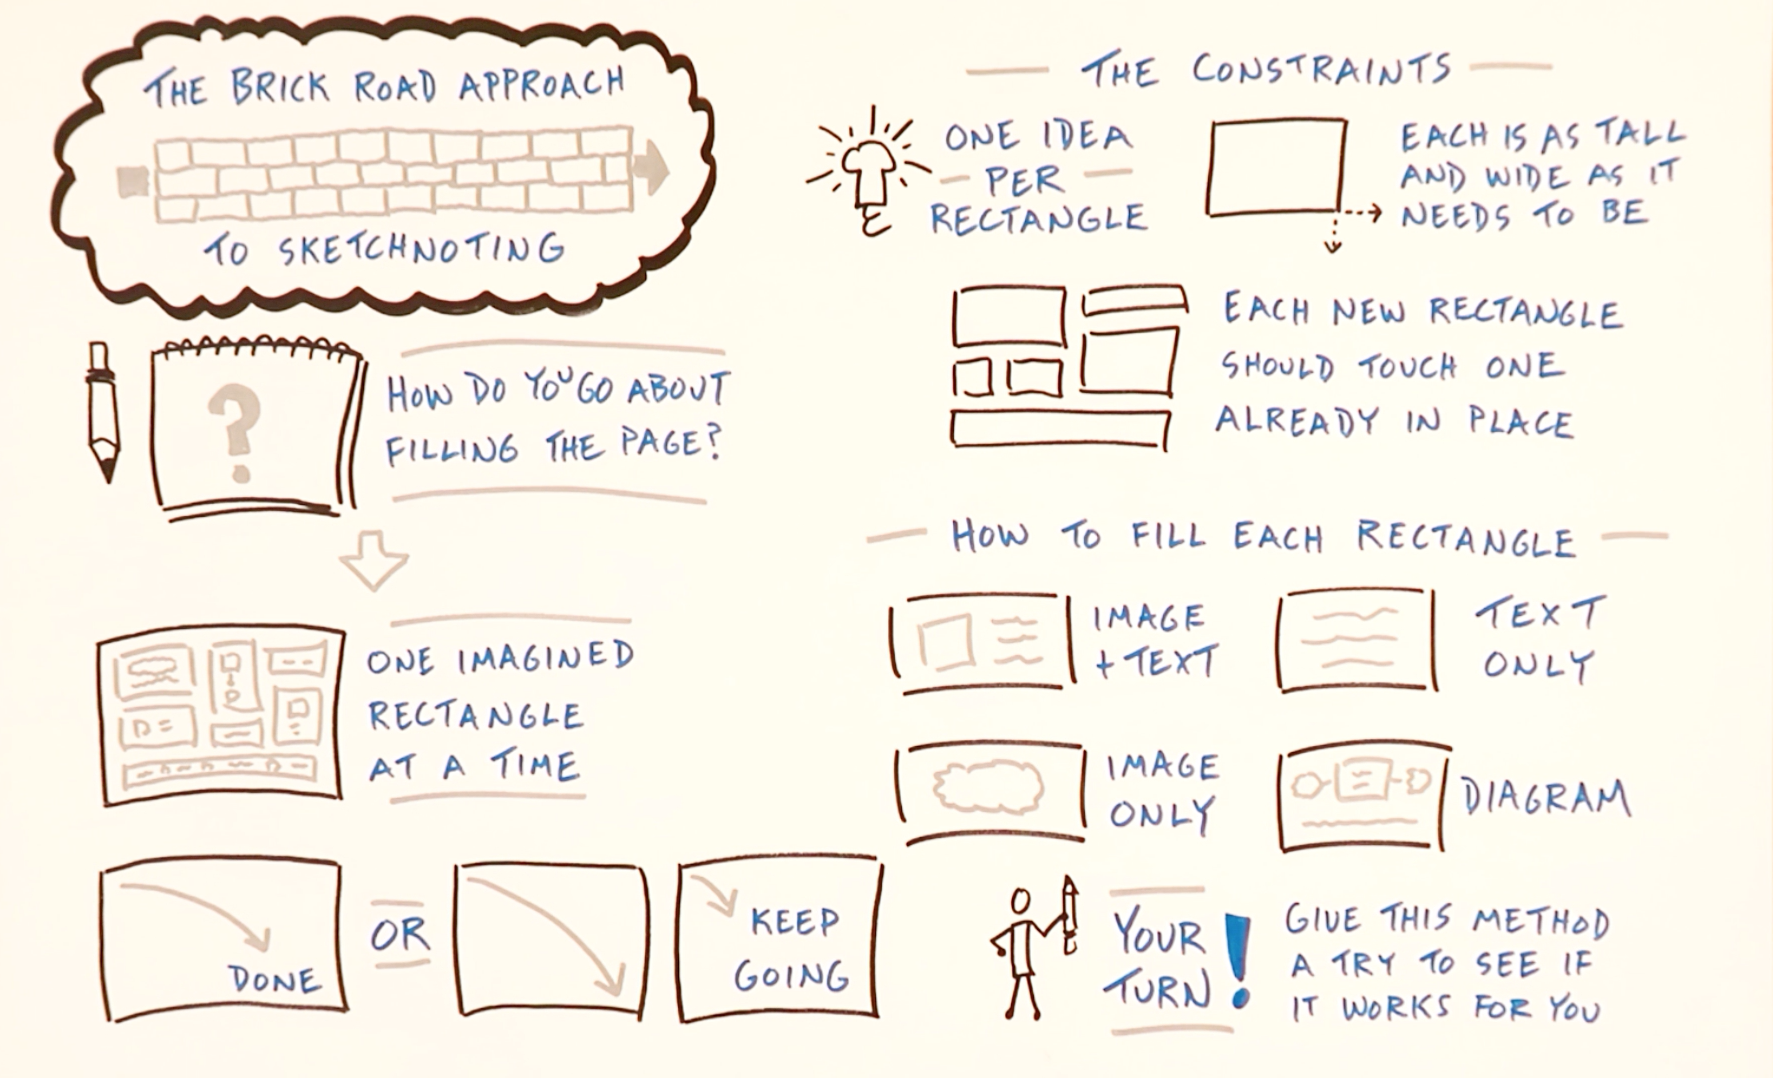 THE BRICK ROAD APPROACH
TO SKETCHNOTING
HOW DO YOU GO ABOUT
FILLING THE PAGE?
ONE IMAGINED
RECTANGLE
AT A TIME
DONE
OR
KEEP
GOING
THE CONSTRAINTS
ONE IDEA
PER
RECTANGLE
EACH IS AS TALL
AND WIDE AS IT
NEEDS TO BE
EACH NEW RECTANGLE
SHOULD TOUCH ONE
ALREADY IN PLACE
HOW TO FILL EACH RECTANGLE
IMAGE
+ TEXT
TEXT
ONLY
IMAGE
ONLY
DIAGRAM
YOUR
TURN!
GIVE THIS METHOD
A TRY TO SEE IF
IT WORKS FOR YOU